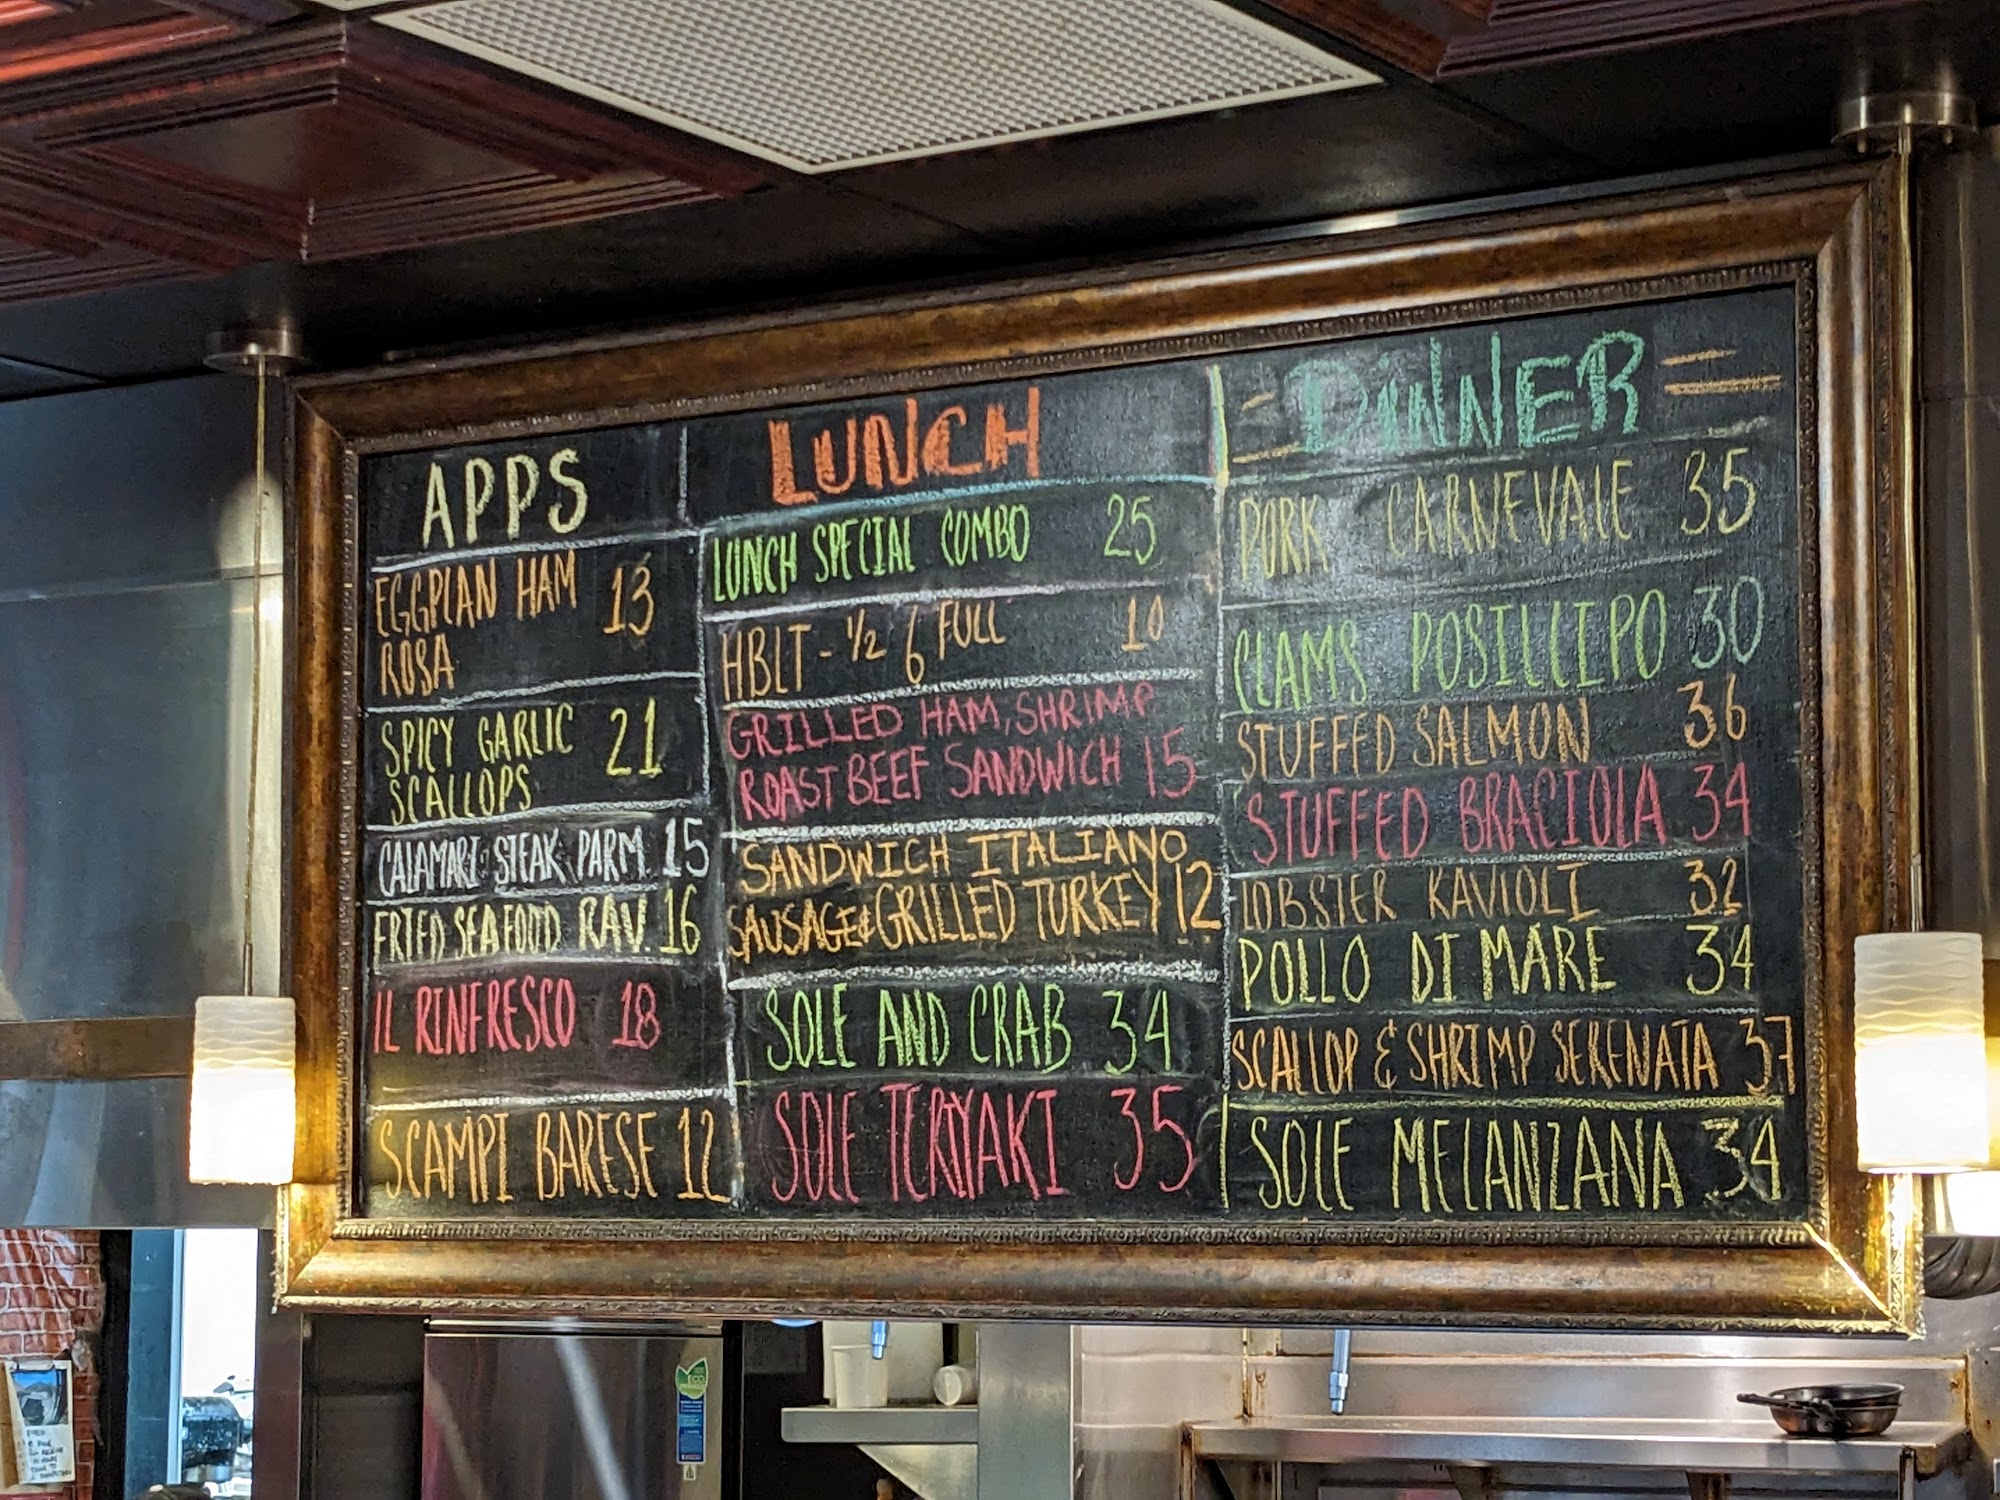 APPS
EGGPLAN HAM 13
ROSA
SPICY GARLIC 21
SCALLOPS
CALAMARI STEAK PARM. 15
FRIED SEAFOOD RAV. 16
IL RINFRESCO 18
SCAMPI BARESE 12
LUNCH
LUNCH SPECIAL COMBO 25
HBLT - 1/2 6 FULL 10
GRILLED HAM, SHRIMP
ROAST BEEF SANDWICH 15
SANDWICH ITALIANO
SAUSAGE & GRILLED TURKEY 12
SOLE AND CRAB 34
SOLE TERIYAKI 35
DINNER
PORK CARNEVALE 35
CLAMS POSILLIPO 30
STUFFED SALMON 36
STUFFED BRACIOLA 34
LOBSTER RAVIOLI 32
POLLO DI MARE 34
SCALLOP & SHRIMP SERENATA 37
SOLE MELANZANA 34